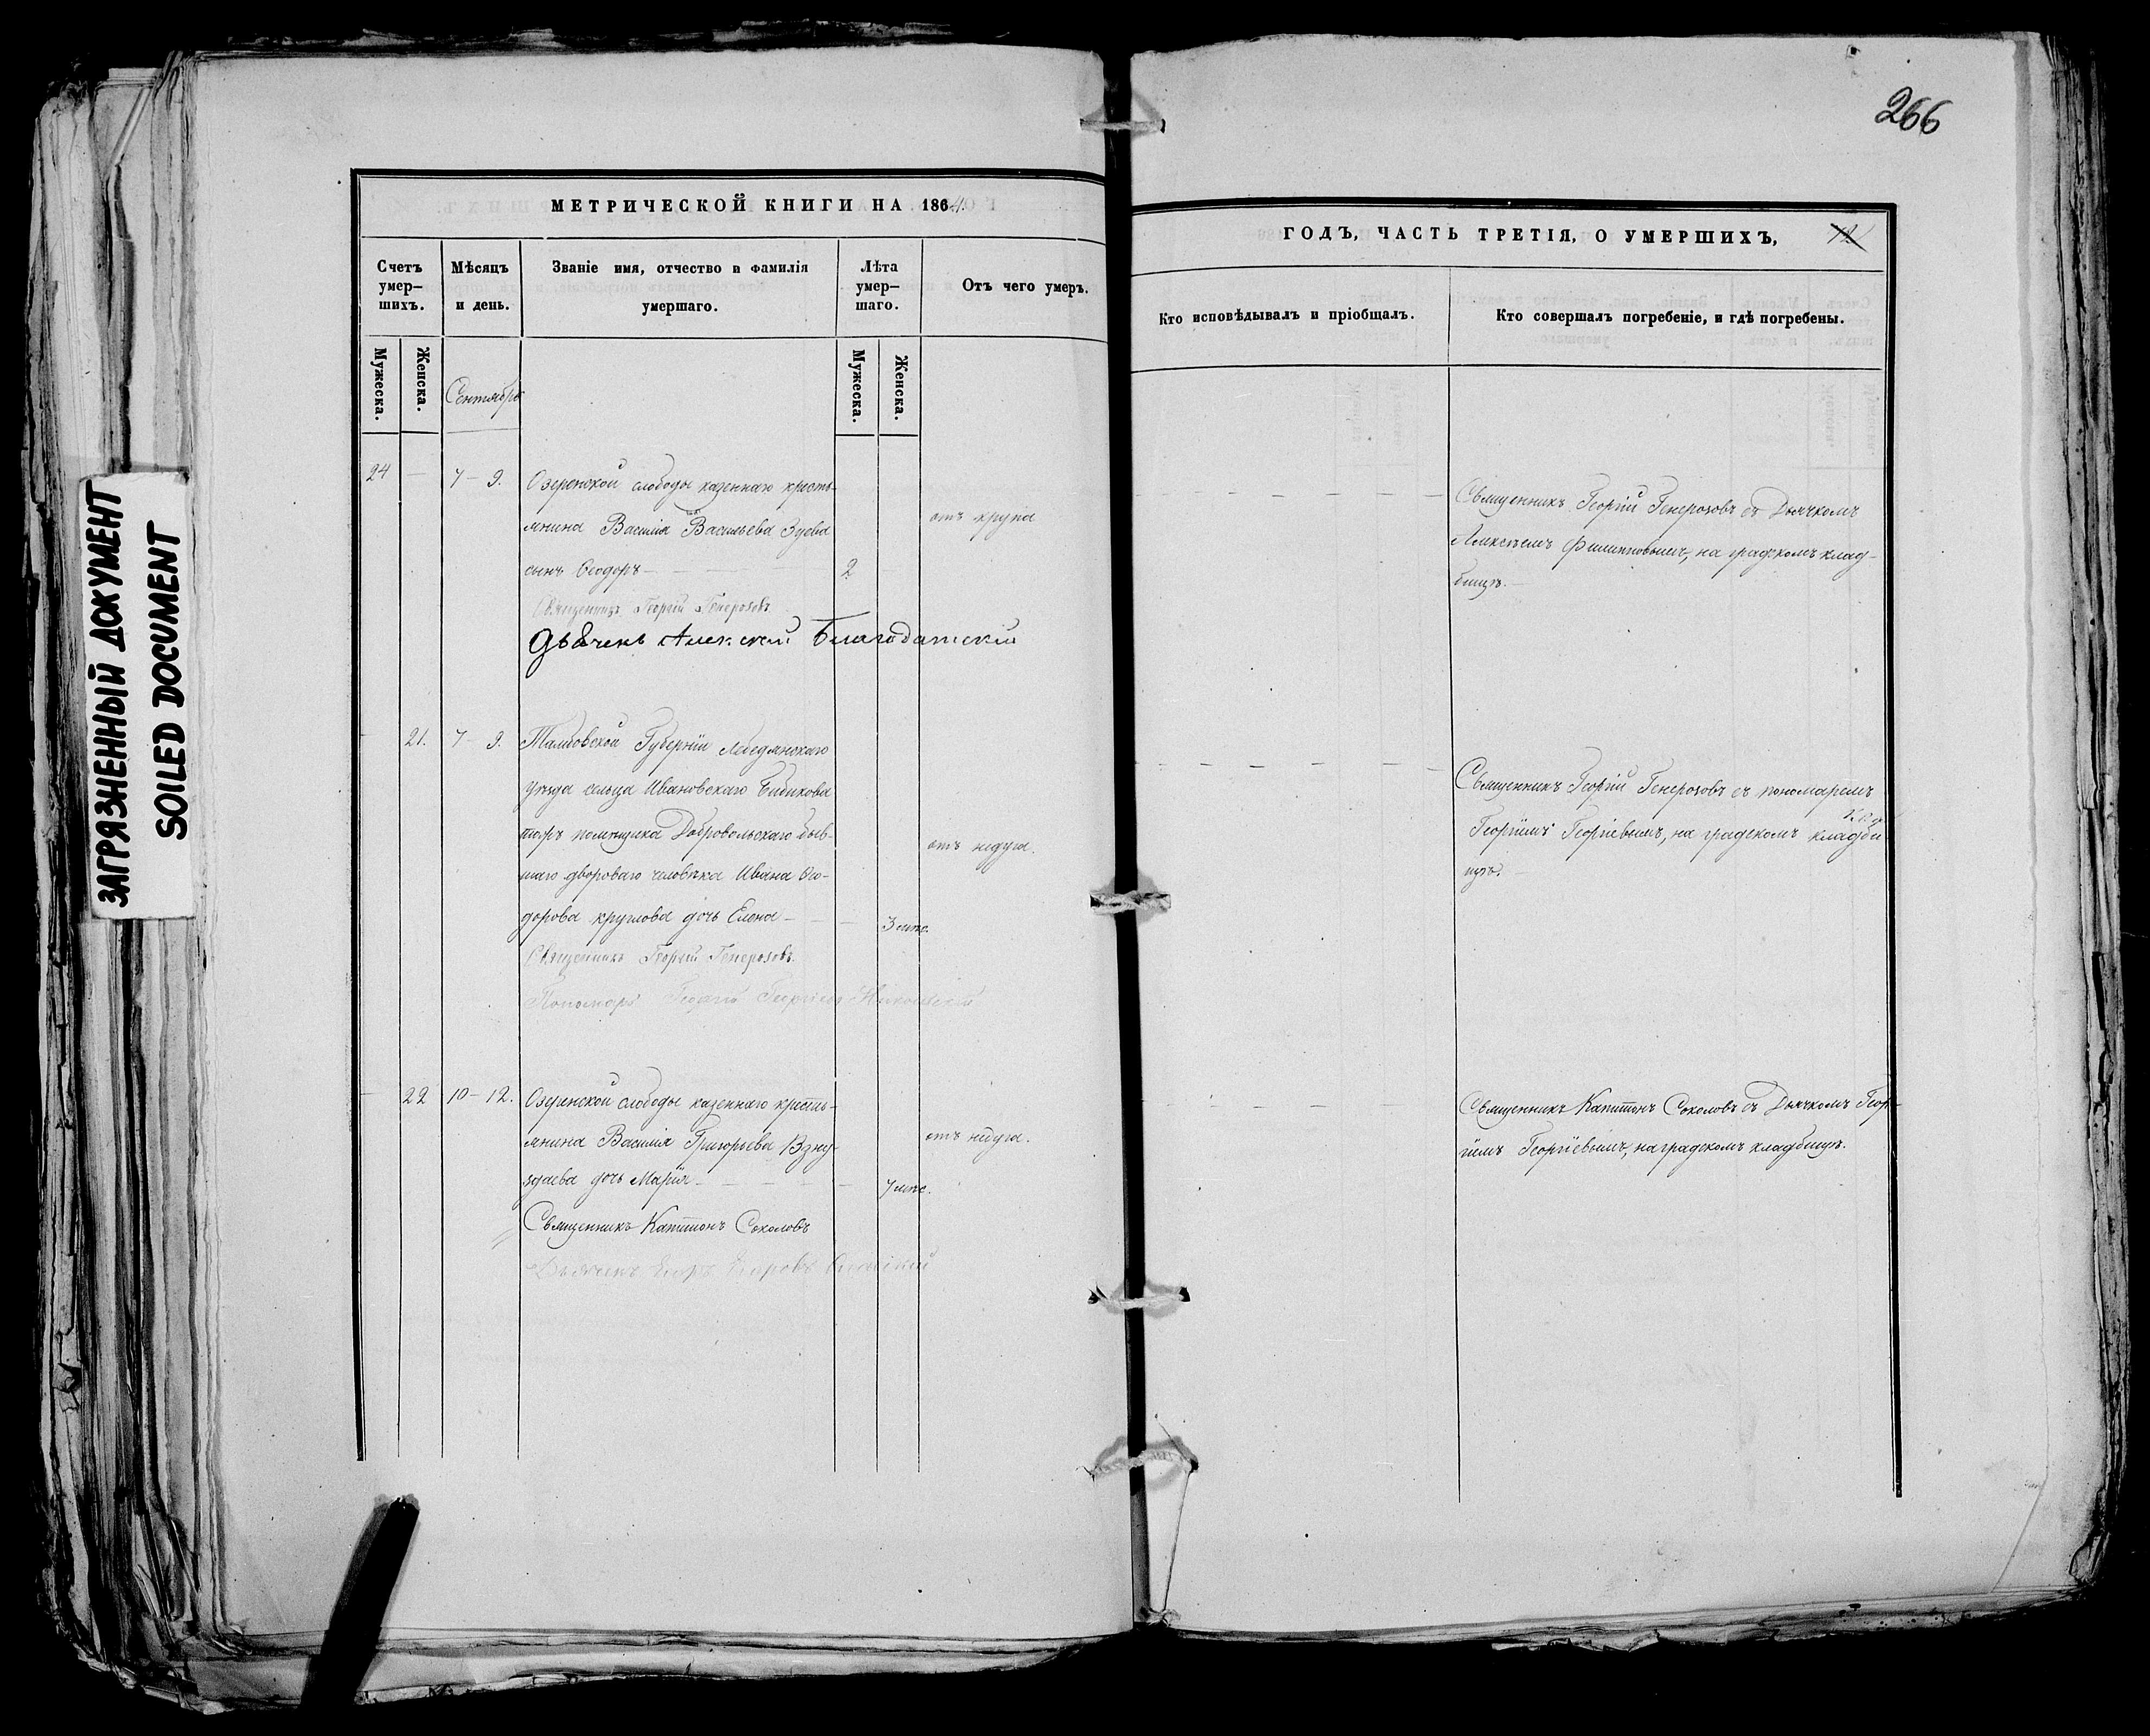 266
ЗАГРЯЗНЕННЫЙ ДОКУМЕНТ
SOILED DOCUMENT
МЕТРИЧЕСКОЙ КНИГИ НА 1864.
Счетъ умер-шихъ.
Мѣсяцъ и день.
Званіе имя, отчество и фамилія умершаго.
Лѣта умер-шаго.
Отъ чего умеръ.
Мужеска.
Женска.
Сентябрь
Мужеска.
Женска.
24 — 7 – 9.
Озеренской слободы казеннаго кресть-
янина Василія Васильева Зуева
сынъ Ѳеодоръ — 2
отъ крупа
Священникъ Георгій Генерозовъ
Дьячекъ Алексѣй Благодатскій
— 21. 7 – 9.
Тамбовской Губерніи Лебедянскаго
уѣзда сельца Ивановскаго Бибикова
тожъ помѣщика Добровольскаго быв-
шаго двороваго человѣка Ивана Ѳео-
дорова Круглова дочь Елена — 3 мѣс.
отъ недуга.
Священникъ Георгій Генерозовъ.
Пономарь Георгій Георгіевъ
— 22 10 – 12.
Озеренской слободы казеннаго кресть-
янина Василія Григорьева Взну-
здаева дочь Марія — 7 мѣс.
отъ недуга.
Священникъ Капитонъ Соколовъ
Дьячекъ Егоръ Егоровъ
ГОДЪ, ЧАСТЬ ТРЕТІЯ, О УМЕРШИХЪ,
Кто исповѣдывалъ и пріобщалъ.
Кто совершалъ погребеніе, и гдѣ погребены.
Священникъ Георгій Генерозовъ съ Дьячкомъ
Алексѣемъ Филипповымъ, на градскомъ клад-
бищѣ.
Священникъ Георгій Генерозовъ съ пономаремъ
Георгіемъ Георгіевымъ, на градскомъ кладби
щѣ.
Священникъ Капитонъ Соколовъ съ Дьячкомъ Геор-
гіемъ Георгіевымъ, на градскомъ кладбищѣ.